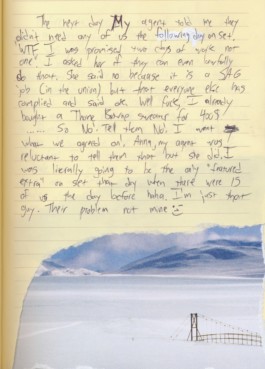 The next day My agent told me they
didn't need any of us the following day on set.
"WTF I was promised two days of work not
one" I asked her if they can even lawfully
do that. She said no because it is a SAG
job (in the union) but that everyone else has
complied and said ok. Well fuck, I already
bought a sweater for 400$!
...... So No. Tell them No. I want
what we agreed on. Anna, my agent was
reluctant to tell them that but she did. I
was literally going to be the only "featured
extra" on set that day when there were 15
of us the day before haha. I'm just that
guy. Their problem not mine :)